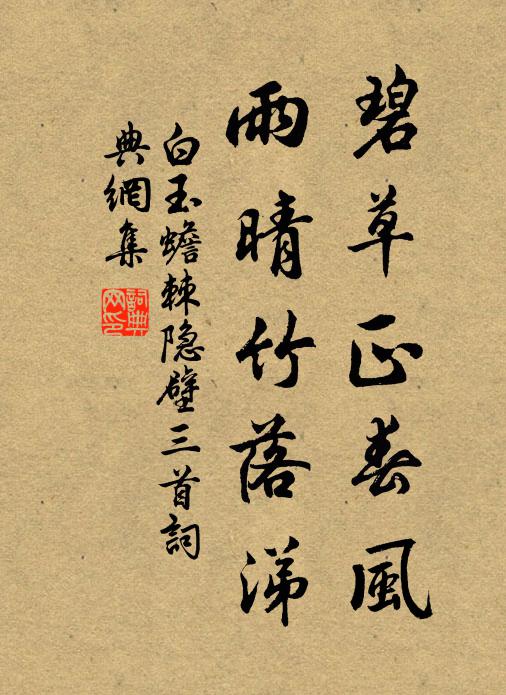 碧草正春風
雨晴竹落涕
白玉蟾棘隐壁三首詞
典網集
詞典網印